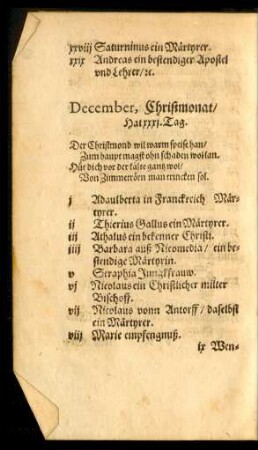 xxviij Saturninus ein Märtyrer.
xxix Andreas ein bestendiger Apostel
vnd Lehrer/ꝛc.
December, Christmonat/
Hat xxxj. Tag.
Der Christmond wil warm speise han/
Zum haupt magst ohn schaden wol lan.
Hüt dich vor der kälte gantz wol/
Von Zimmetrörn man trincken sol.
j Adaulberta in Franckreich Mär-
tyrer.
ij Thierius Gallus ein Märtyrer.
iij Athalus ein bekenner Christi.
iiij Barbara auß Nicomedia/ ein be-
stendige Märtyrin.
v Seraphia Jungkfrauw.
vj Nicolaus ein Christlicher milter
Bischoff.
vij Nicolaus vonn Antorff/ daselbst
ein Märtyrer.
viij Marie empfengnuß.
ix Wen-